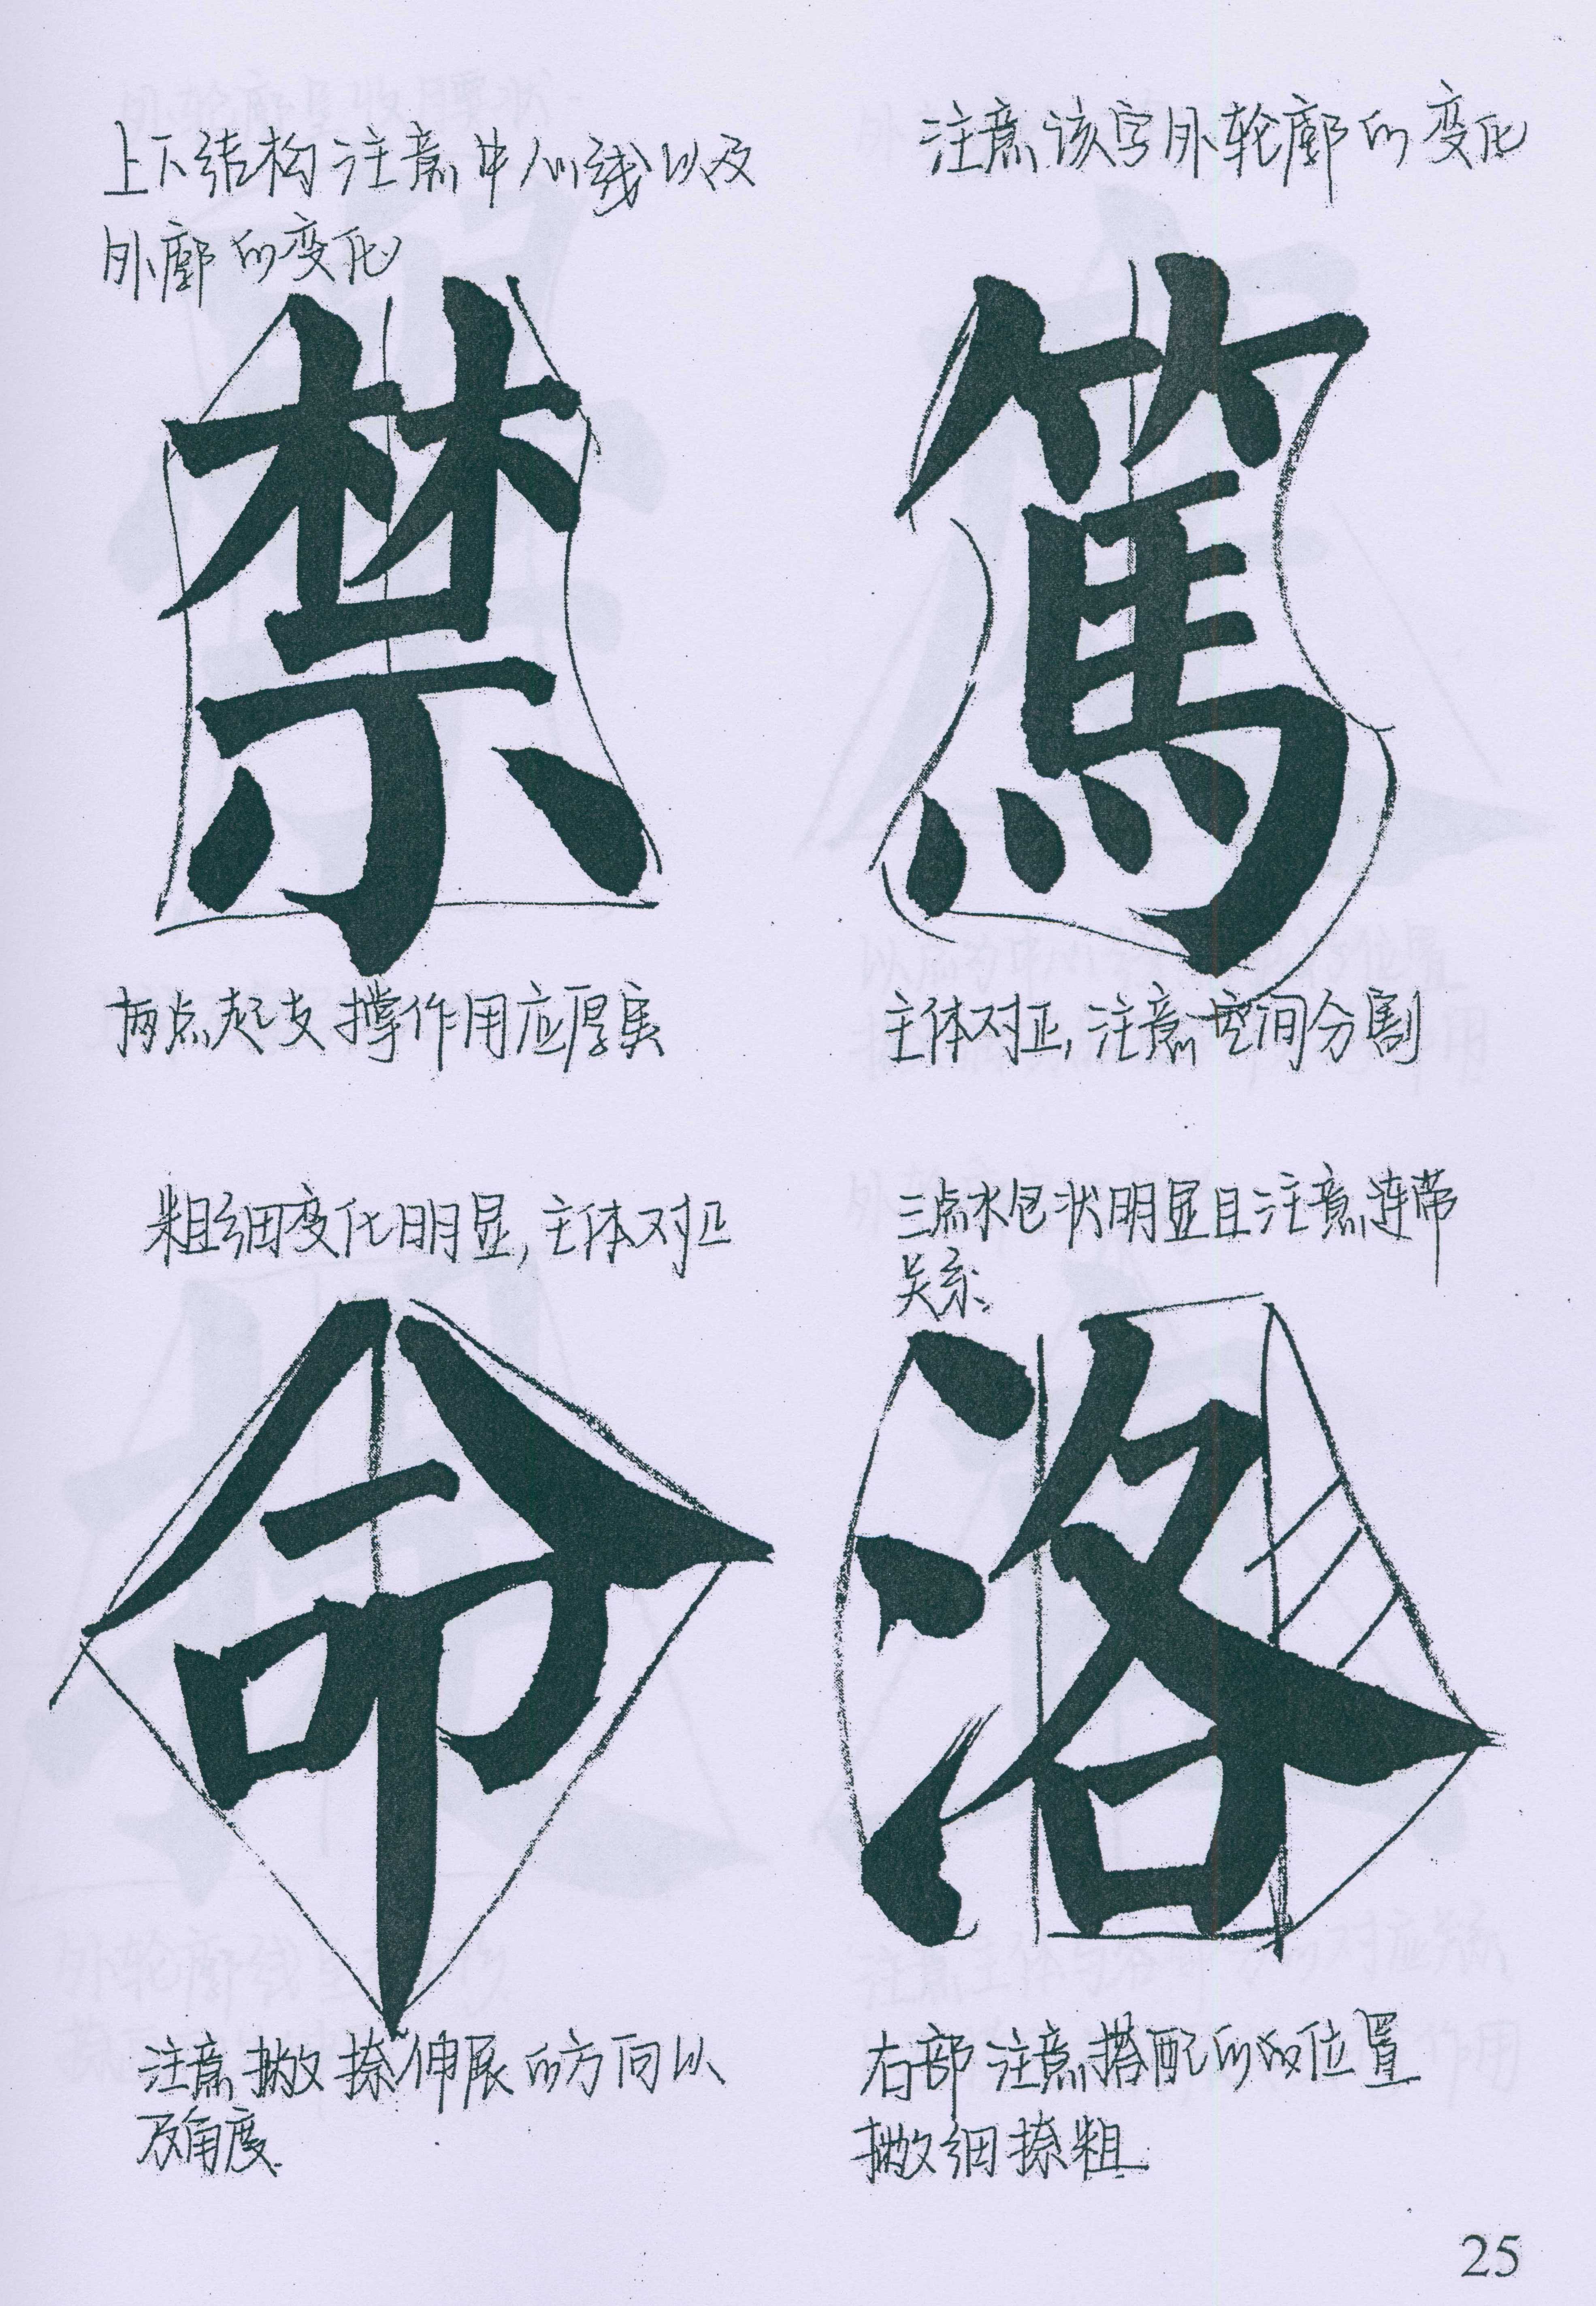 上下结构注意中心线以及
外廓的变化
禁
两点起支撑作用应厚实
注意该字外轮廓的变化
篤
主体对正,注意空间分割
粗细变化明显,主体对正
命
注意撇捺伸展的方向以
及角度.
三点水包状明显且注意连带
关系.
洛
右部注意搭配的位置
撇细捺粗.
25